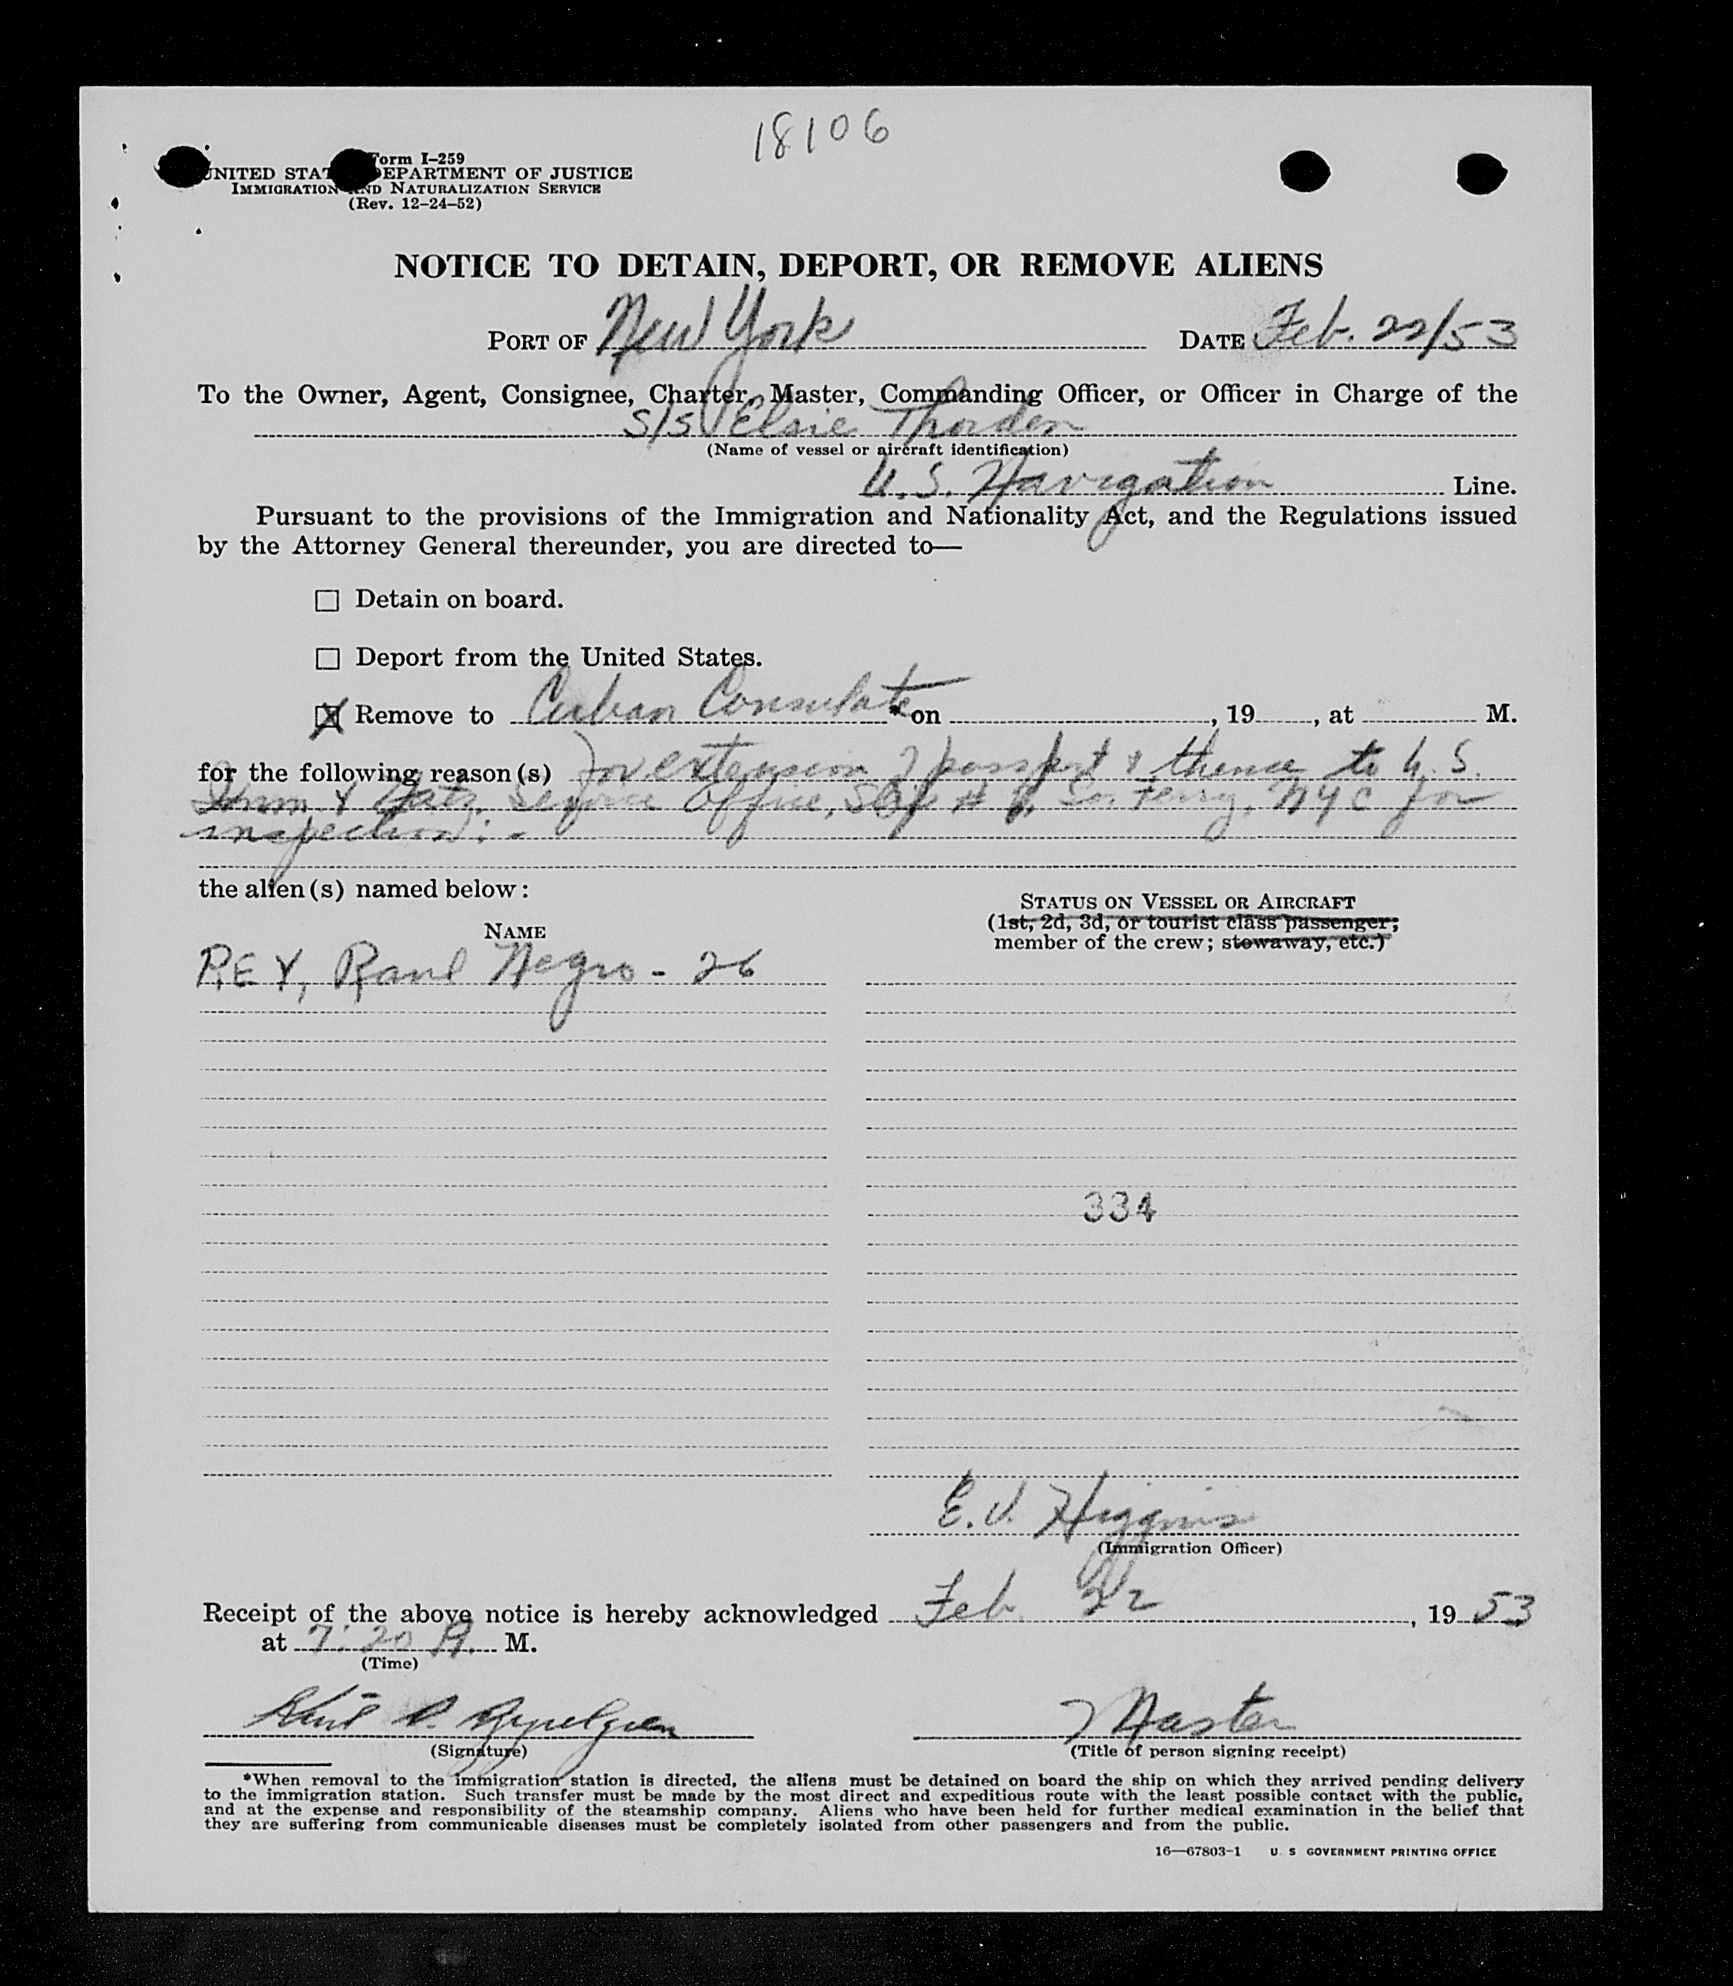 18106
Form I-259
UNITED STATES DEPARTMENT OF JUSTICE
IMMIGRATION AND NATURALIZATION SERVICE
(Rev. 12-24-52)
NOTICE TO DETAIN, DEPORT, OR REMOVE ALIENS
PORT OF New York DATE Feb. 22/53
To the Owner, Agent, Consignee, Charter, Master, Commanding Officer, or Officer in Charge of the
S/S Elsie Thorden
(Name of vessel or aircraft identification)
U.S. Navigation Line.
Pursuant to the provisions of the Immigration and Nationality Act, and the Regulations issued
by the Attorney General thereunder, you are directed to—
☐ Detain on board.
☐ Deport from the United States.
☒ Remove to Cuban Consulate * on , 19 , at M.
for the following reason(s) for extension of passport & thence to U.S.
Imm. & Natz. Service Office, Slip # So. Ferry, NYC for
inspection: -
the alien(s) named below:
STATUS ON VESSEL OR AIRCRAFT
(1st, 2d, 3d, or tourist class passenger;
member of the crew; stowaway, etc.)
NAME
REY, Raul Negro - 26
334
E.V. Higgins
(Immigration Officer)
Receipt of the above notice is hereby acknowledged Feb. 22, 1953
at 7:20 A. M.
(Time)
Master
(Signature) (Title of person signing receipt)
*When removal to the immigration station is directed, the aliens must be detained on board the ship on which they arrived pending delivery
to the immigration station. Such transfer must be made by the most direct and expeditious route with the least possible contact with the public,
and at the expense and responsibility of the steamship company. Aliens who have been held for further medical examination in the belief that
they are suffering from communicable diseases must be completely isolated from other passengers and from the public.
16—67803-1 U. S. GOVERNMENT PRINTING OFFICE